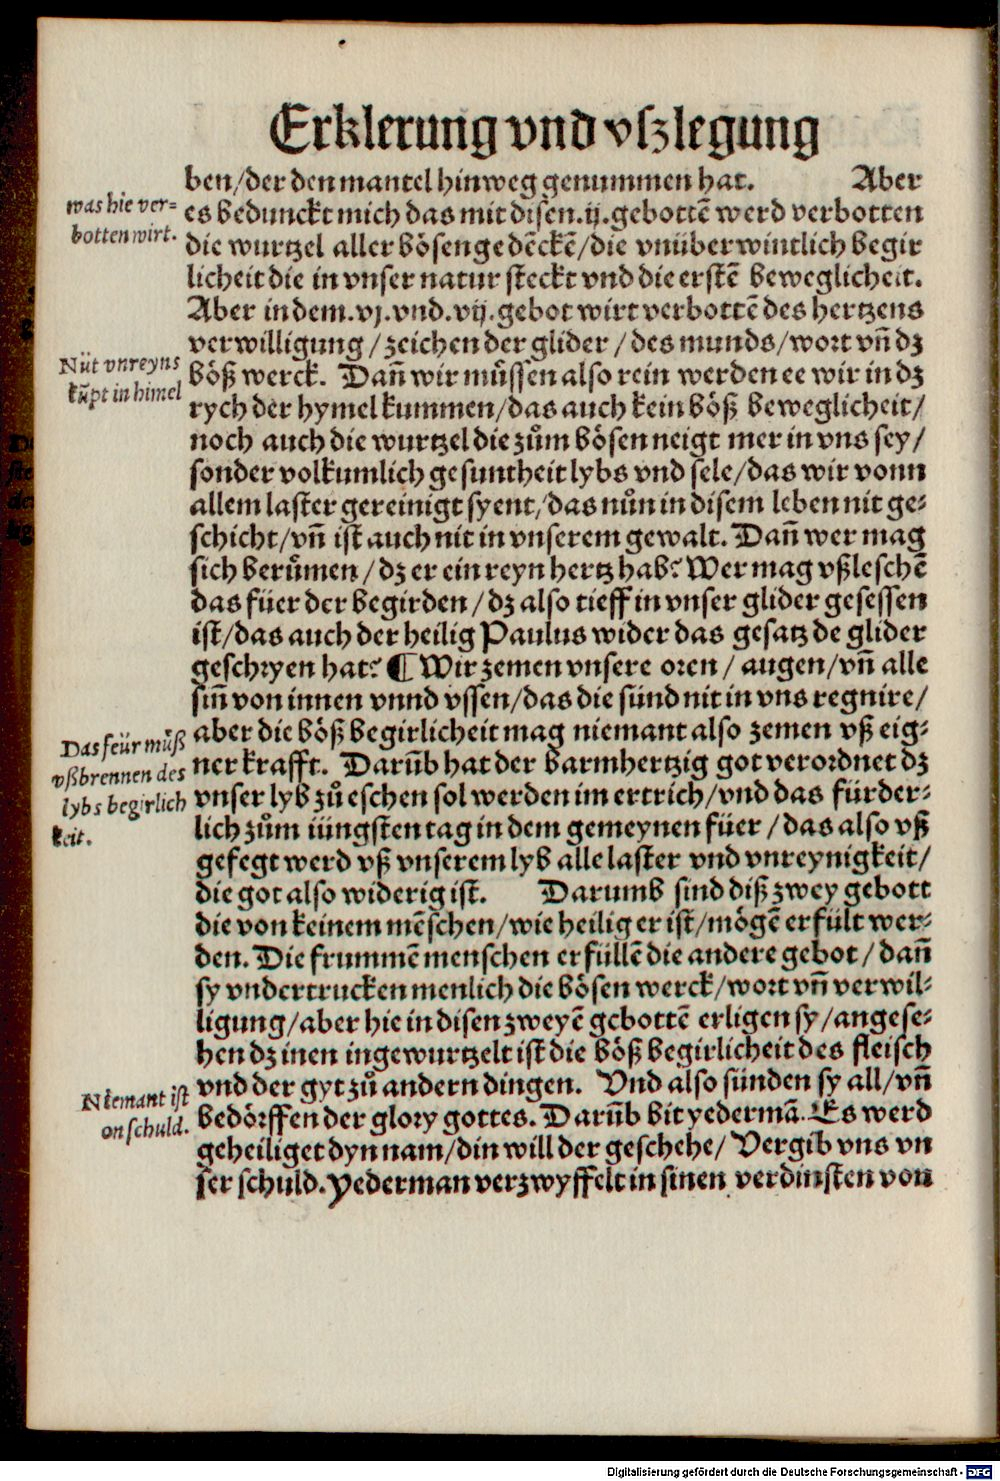 Erklerung vnd vſzlegung
ben/der den mantel hinweg genummen hat. Aber
was hie ver=
es bedunckt mich das mit diſen.ij.gebottē werd verbotten
botten wirt.
die wurtzel aller böſen gedēckē/die vnüberwintlich begir
licheit die in vnſer natur ſteckt vnd die erſtē beweglicheit.
Aber in dem.vj.vnd.vij.gebot wirt verbottē des hertzens
verwilligung/zeichen der glider/des munds/wort vn̄ dz
Nüt vnreyns
böß werck. Dan̄ wir můſſen alſo rein werden ee wir in dz
kūpt in himel
rych der hymel kummen/das auch kein böß beweglicheit/
noch auch die wurtzel die zům böſen neigt mer in vns ſey/
ſonder volkumlich geſuntheit lybs vnd ſele/das wir vonn
allem laſter gereinigt ſyent/das nůn in diſem leben nit ge=
ſchicht/vn̄ iſt auch nit in vnſerem gewalt. Dan̄ wer mag
ſich berůmen/dz er ein reyn hertz hab? Wer mag vßleſchē
das füer der begirden/dz alſo tieff in vnſer glider geſeſſen
iſt/das auch der heilig Paulus wider das geſatz de glider
geſchryen hat? ¶ Wir zemen vnſere oren/augen/vn̄ alle
ſin̄ von innen vnnd vſſen/das die ſünd nit in vns regnire/
aber die böß begirlicheit mag niemant alſo zemen vß eig=
Das feür můß
ner krafft. Darūb hat der barmhertzig got verordnet dz
vßbrennen des
vnſer lyb zů eſchen ſol werden im ertrich/vnd das fürder=
lybs begirlich
lich zům iüngſten tag in dem gemeynen füer/das alſo vß
keit.
gefegt werd vß vnſerem lyb alle laſter vnd vnreynigkeit/
die got alſo widerig iſt. Darumb ſind diß zwey gebott
die von keinem mēſchen/wie heilig er iſt/mögē erfült wer=
den. Die frummē menſchen erfüllē die andere gebot/dan̄
ſy vndertrucken menlich die böſen werck/wort vn̄ verwil=
ligung/aber hie in diſen zweyē gebottē erligen ſy/angeſe=
hen dz inen ingewurtzelt iſt die böß begirlicheit des fleiſch
Niemant iſt
vnd der gyt zů andern dingen. Vnd alſo ſünden ſy all/vn̄
on ſchuld.
bedörffen der glory gottes. Darūb bit yedermā. Es werd
geheiliget dyn nam/din will der geſchehe/Vergib vns vn
ſer ſchuld. Yederman verzwyffelt in ſinen verdinſten von
Digitalisierung gefördert durch die Deutsche Forschungsgemeinschaft - DFG